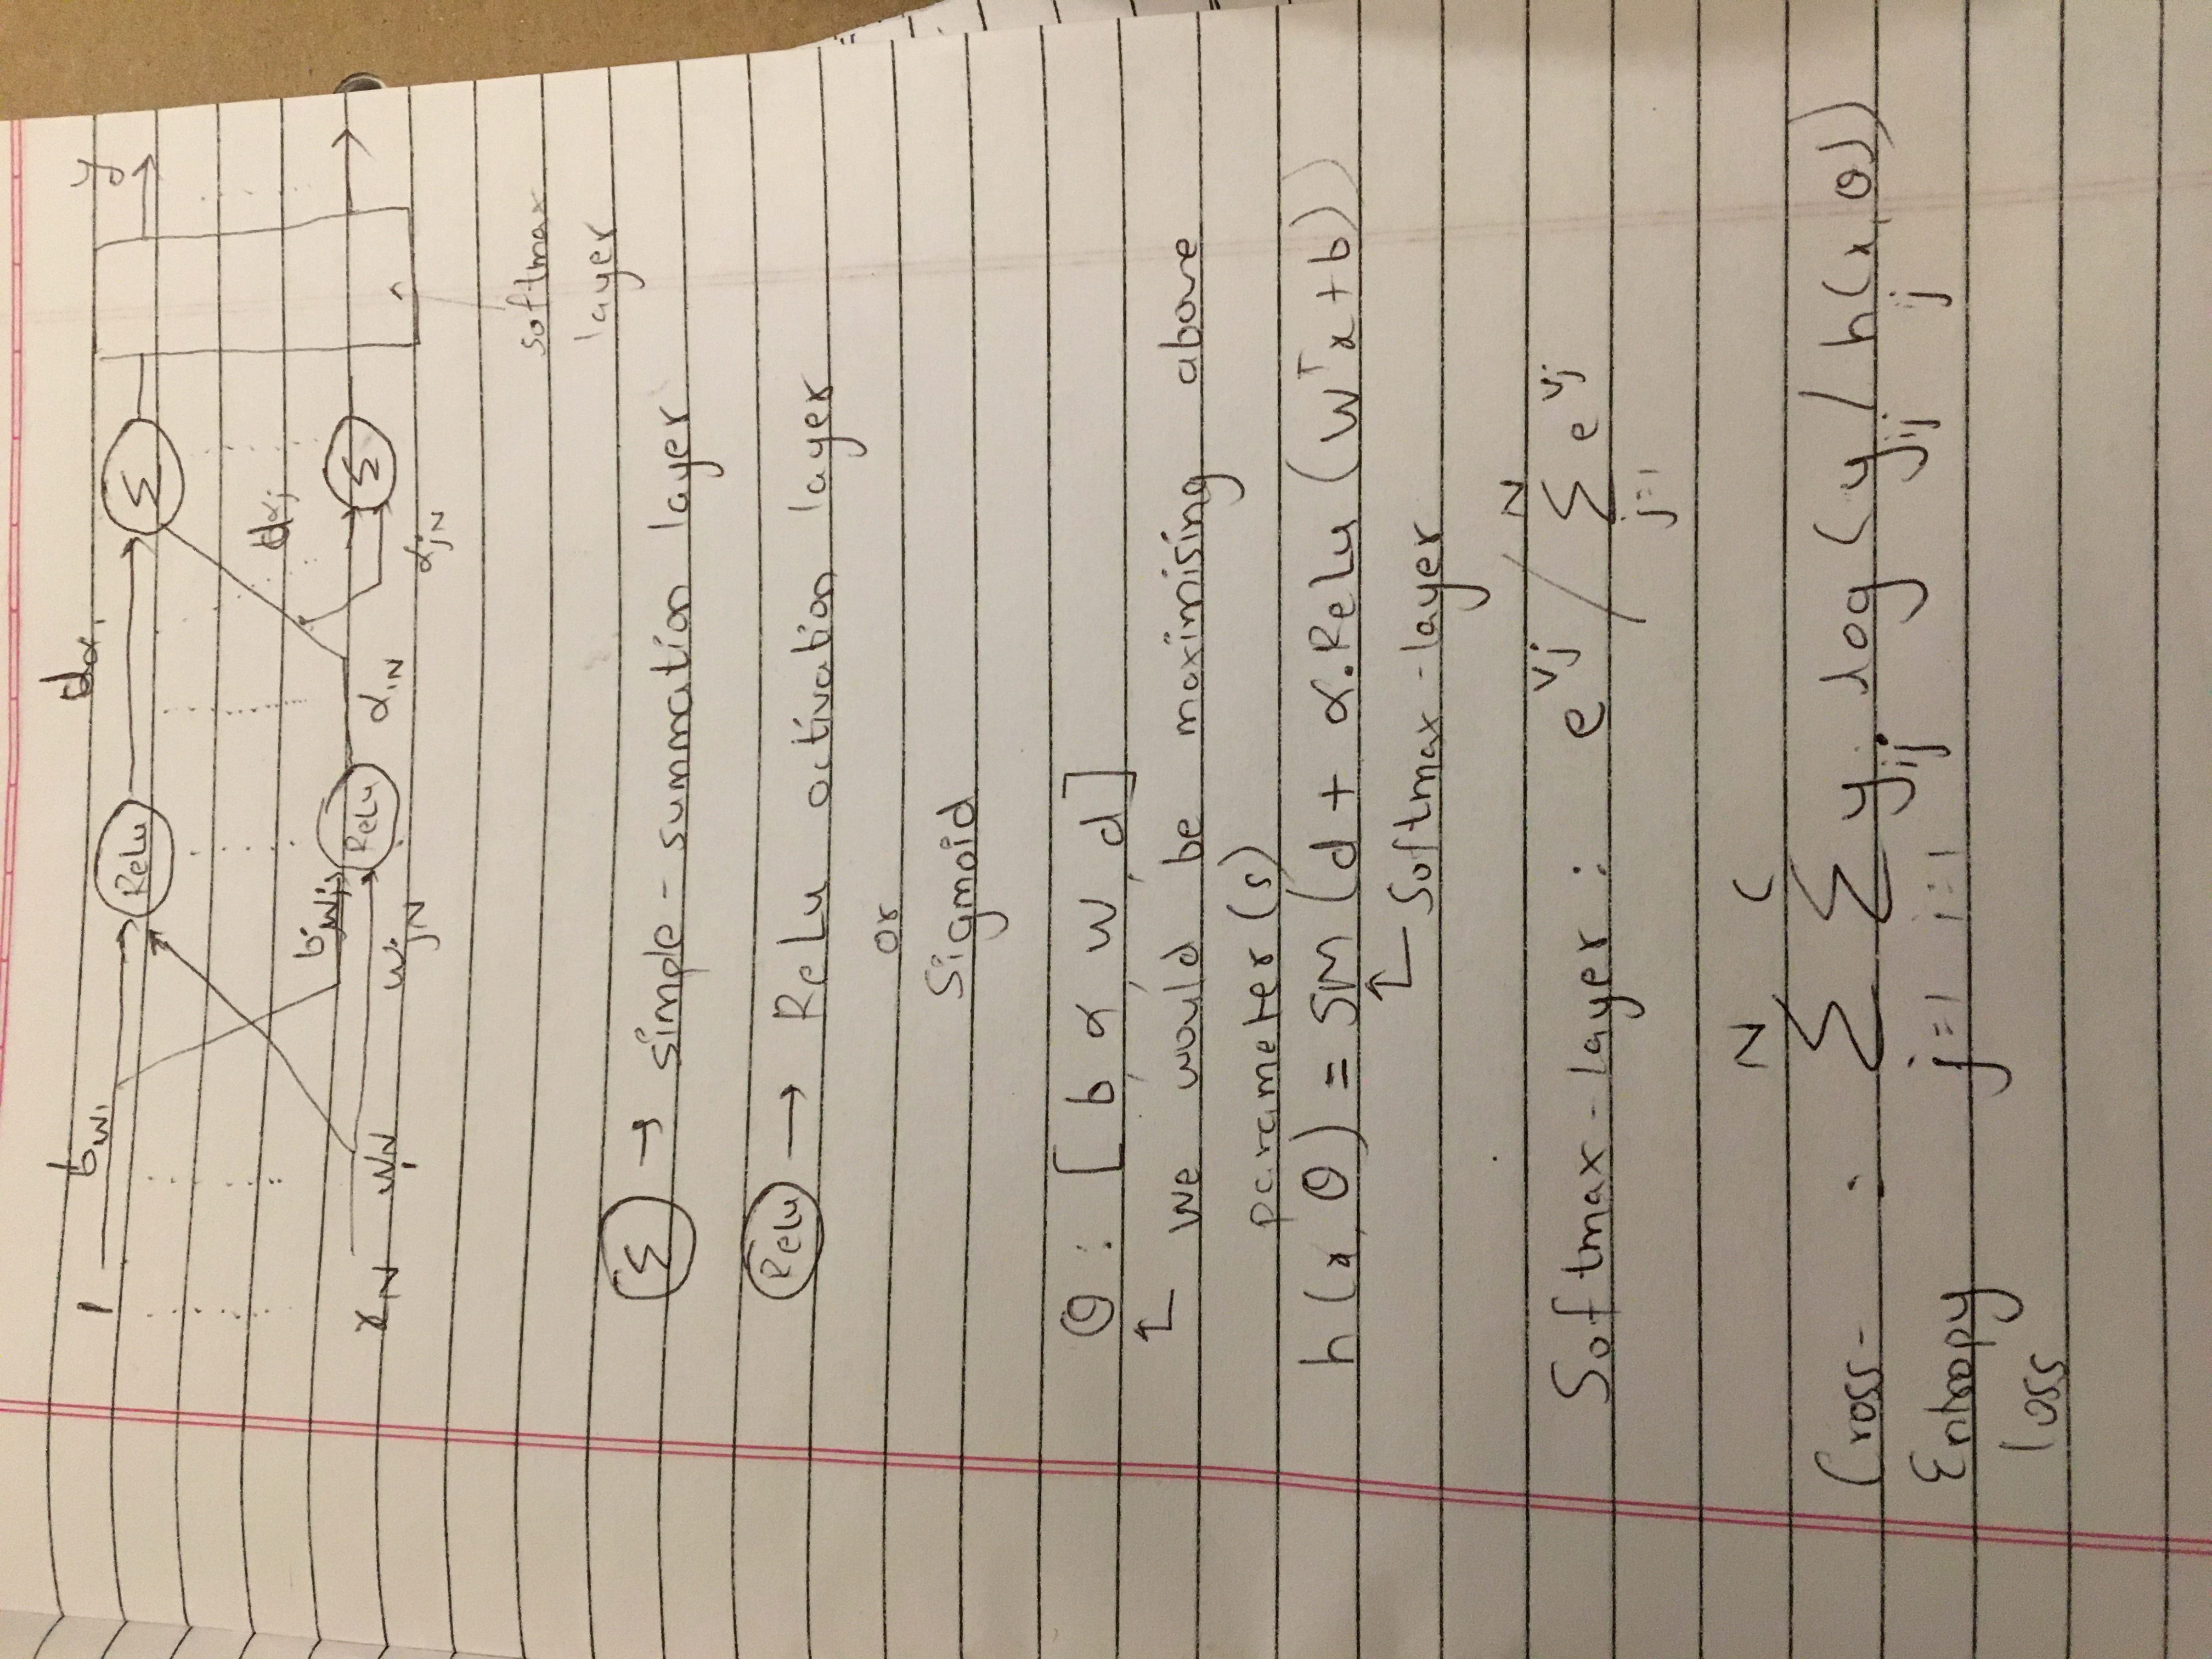 1 b w₁ ReLu dα₁ Σ y
b jwj ReLu dαj Σ
x_N w_1N w_jN α_1N α_jN
softmax
layer
Σ → simple - summation layer
ReLu → ReLu activation layer
or
Sigmoid
θ : [ b, α, w, d ]
↑ we would be maximising above
parameter (s)
h (x, θ) = SM (d + α. ReLu (Wᵀx + b))
↑ Softmax - layer
Softmax - layer : e^vj / Σ_{j=1}^{N} e^vj
Cross- : Σ_{j=1}^{N} Σ_{i=1}^{C} y_ij . log (y_ij / h_j(x, θ))
Entropy
loss